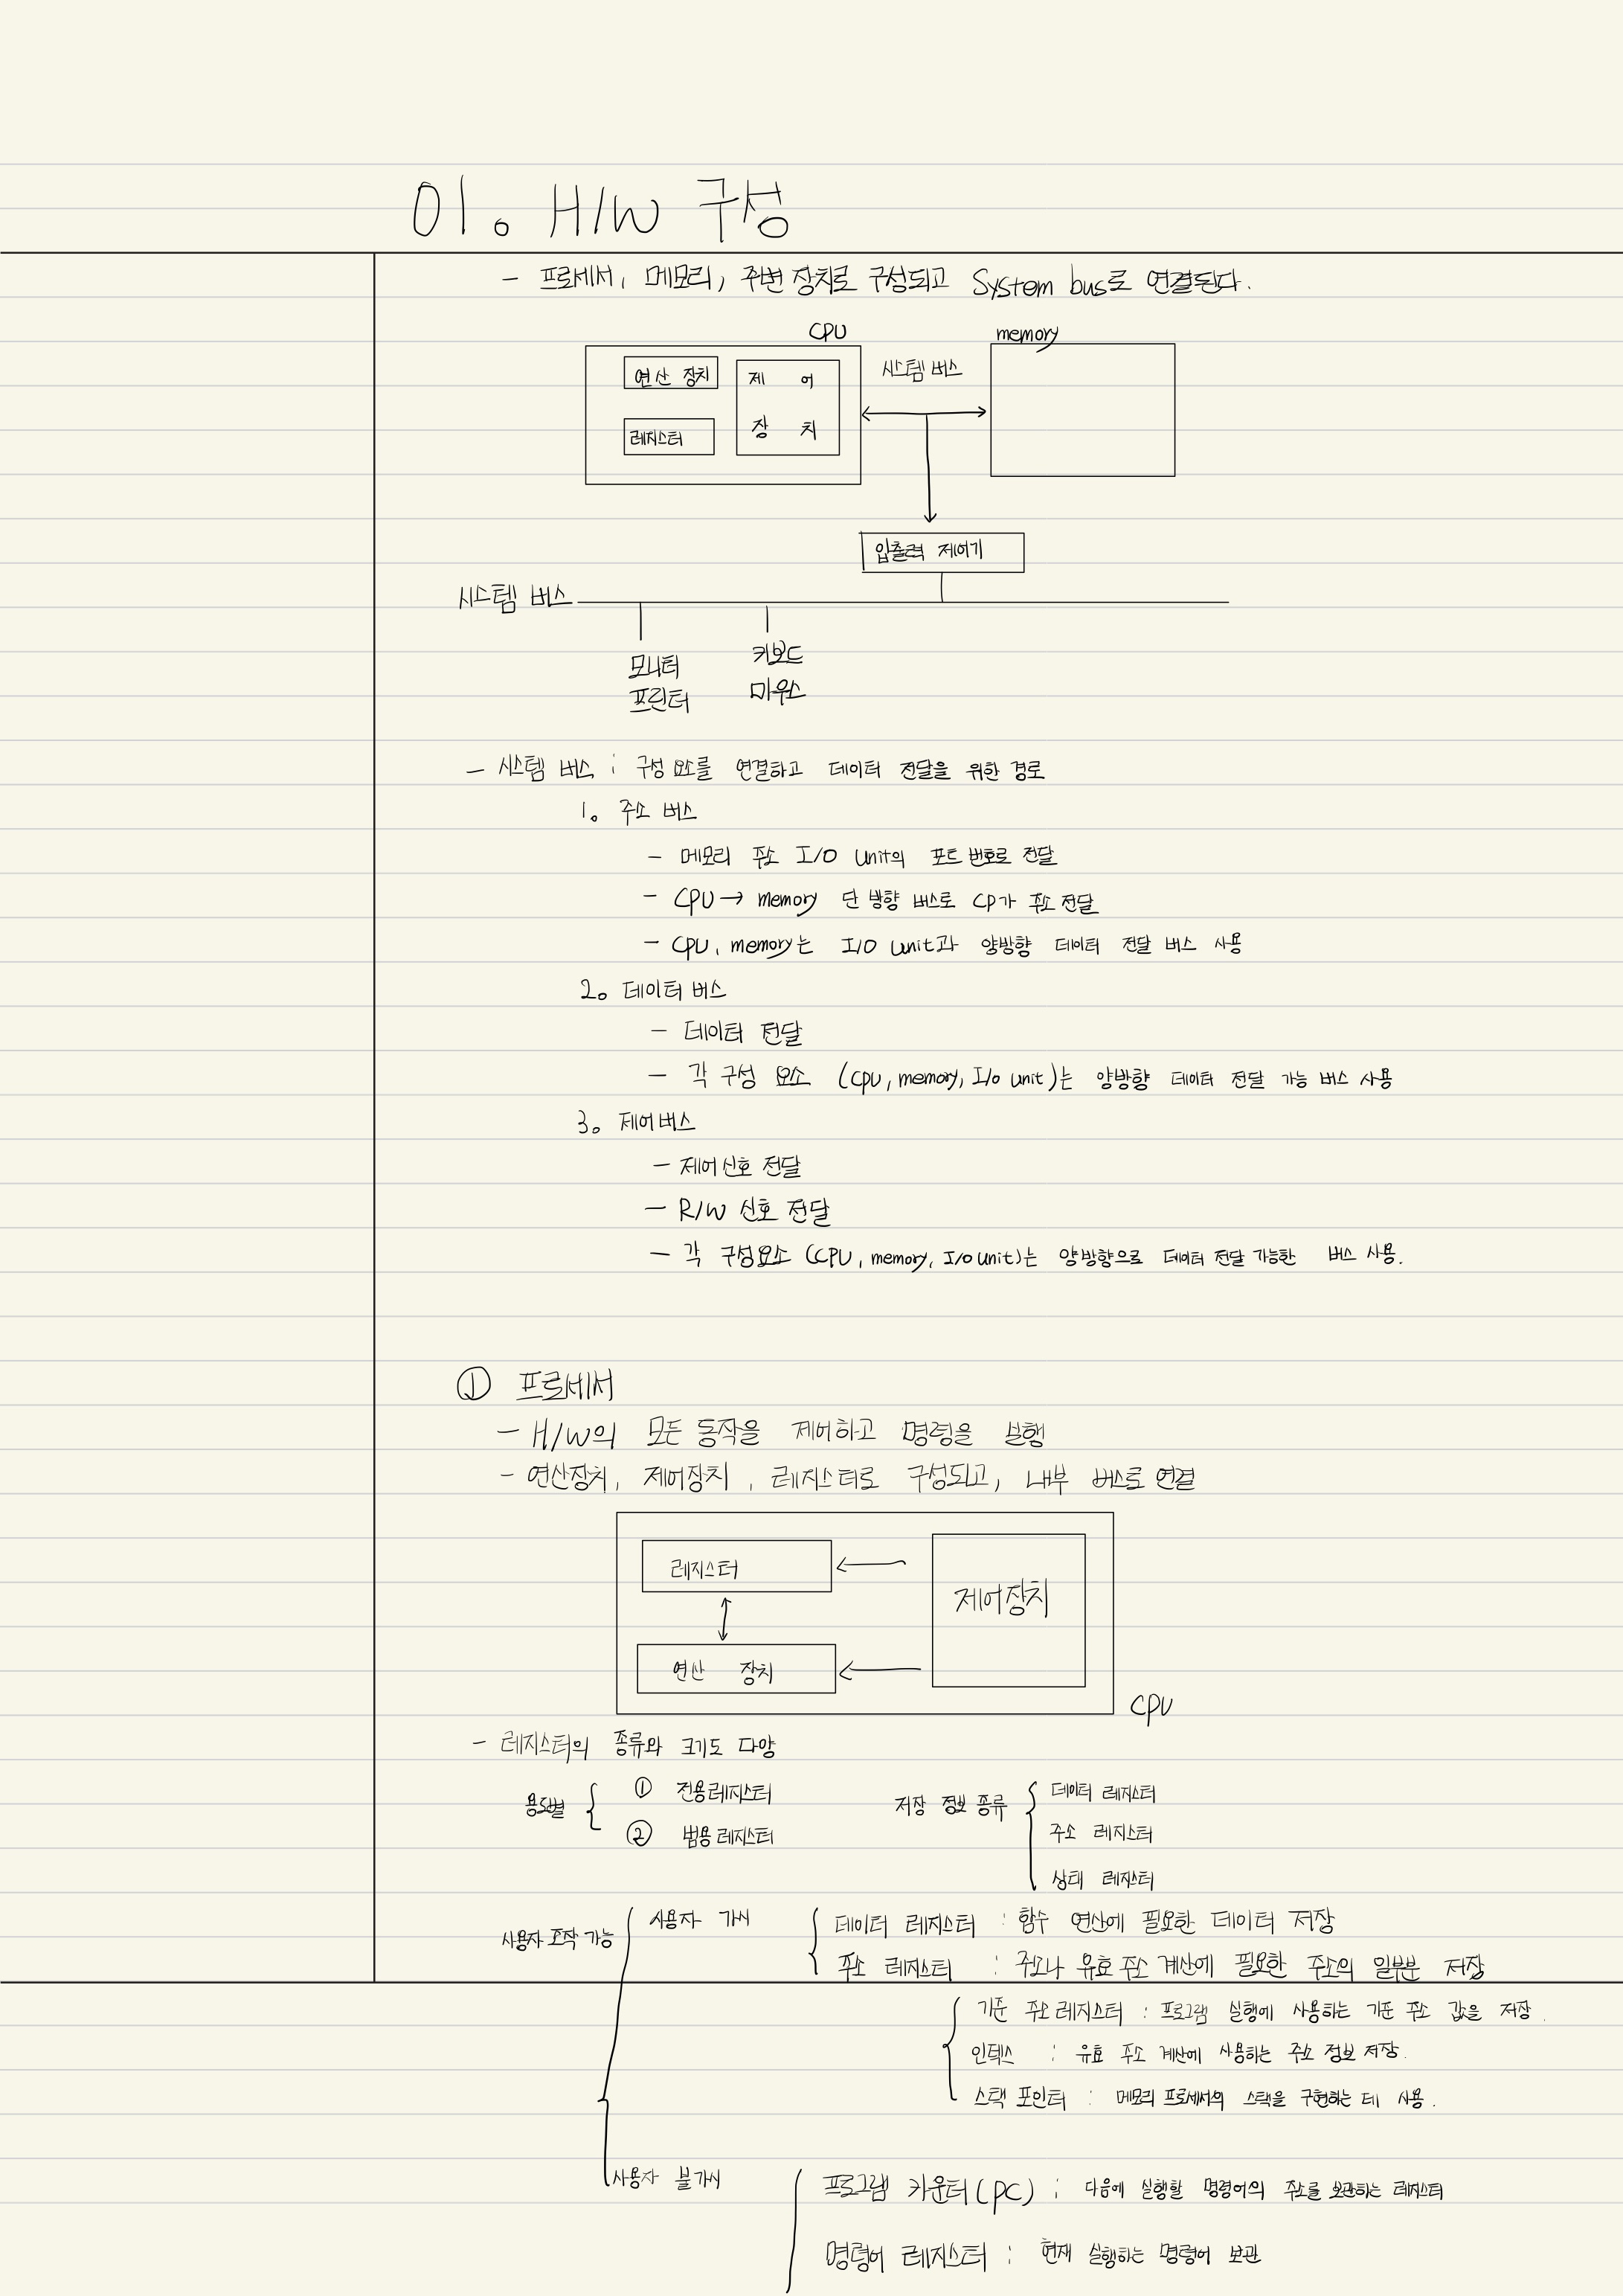 01. H/W 구성
- 프로세서, 메모리, 주변 장치로 구성되고 System bus로 연결된다.
CPU
memory
연산 장치
제 어
장 치
레지스터
시스템 버스
입출력 제어기
시스템 버스
모니터
프린터
키보드
마우스
- 시스템 버스 : 구성 요소를 연결하고 데이터 전달을 위한 경로
1. 주소 버스
- 메모리 주소 I/O Unit의 포트 번호로 전달
- CPU → memory 단 방향 버스로 CP가 주소 전달
- CPU, memory는 I/O unit과 양방향 데이터 전달 버스 사용
2. 데이터 버스
- 데이터 전달
- 각 구성 요소 (CPU, memory, I/O unit)는 양방향 데이터 전달 가능 버스 사용
3. 제어버스
- 제어신호 전달
- R/W 신호 전달
- 각 구성요소 (CPU, memory, I/O unit)는 양방향으로 데이터 전달 가능한 버스 사용.
① 프로세서
- H/W의 모든 동작을 제어하고 명령을 실행
- 연산장치, 제어장치, 레지스터로 구성되고, 내부 버스로 연결
레지스터
제어장치
연산 장치
CPU
- 레지스터의 종류와 크기도 다양
용도별
① 전용레지스터
② 범용 레지스터
저장 정보 종류
데이터 레지스터
주소 레지스터
상태 레지스터
사용자 조작 가능
사용자 가시
데이터 레지스터 : 함수 연산에 필요한 데이터 저장
주소 레지스터 : 주소나 유효 주소 계산에 필요한 주소의 일부분 저장
기준 주소 레지스터 : 프로그램 실행에 사용하는 기준 주소 값을 저장.
인덱스 : 유효 주소 계산에 사용하는 주소 정보 저장.
스택 포인터 : 메모리 프로세서의 스택을 구현하는 데 사용.
사용자 불가시
프로그램 카운터(PC) : 다음에 실행할 명령어의 주소를 보관하는 레지스터
명령어 레지스터 : 현재 실행하는 명령어 보관